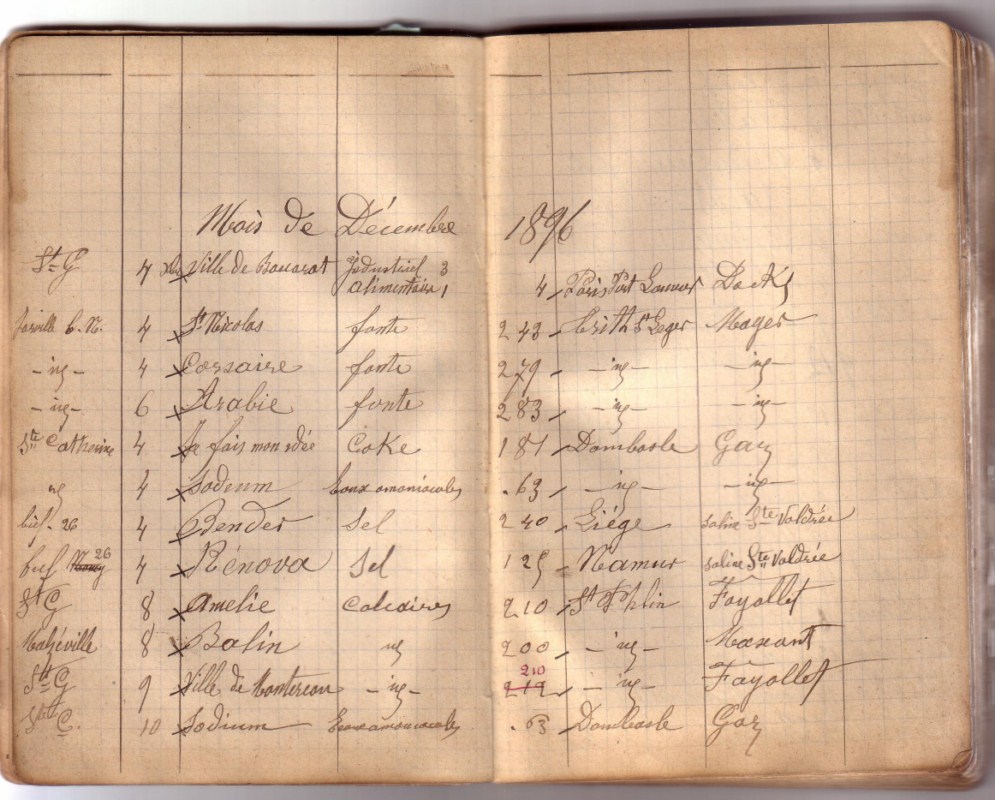 Mois de Décembre 1896
St G 4 Ville de Baccarat Industriel 3 4 Paris Port Docks
alimentaire 1
Jarville C. N. 4 St Nicolas fonte 243 Crith St Leger Mager
- ' - 4 Corsaire fonte 279 - ' - - ' -
- ' - 6 Arabie fonte 283 - ' - - ' -
Ste Catherine 4 Je fais mon idée Coke 181 Dombasle Gaz
4 Sodium Eaux amoniacales .63 - ' - - ' -
bief. 26 4 Bender Sel 240 Liége saline Ste Valdrée
bief 26 4 Rénova Sel 125 Namur saline Ste Valdrée
St G 8 Amelie Calcaires 210 St Phlin Fayollet
Malzéville 8 Balin 200 - ' - Maxant
St G 9 Ville de Montereau - ' - 210 219 - ' - Fayollet
Ste C. 10 Sodium Eaux amoniacales .63 Dombasle Gaz